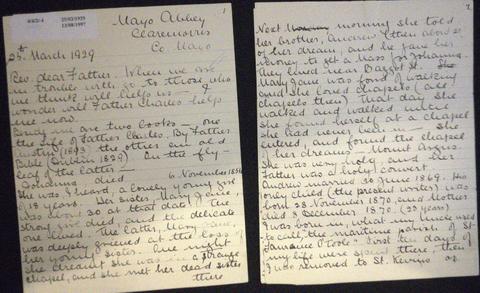 25/02/1935
13/08/1997
Mayo Abbey
Claremorris
Co. Mayo
25th March 1929
Rev. dear Father, When we are
in trouble with go to those who
we think will help us – I
wonder will Father Charles help
me now.
Beside me are two books – one
the life of Father Charles. By Father
Austin (1893) the other an old
Bible (Dublin 1829) On the fly-
leaf of the latter
Johanna died 6 November
She was, I heard, a lovely young girl
18 years. Her sister, Mary Jane,
was about 20 at that date. The
strong girl died and the delicate
one lived. The latter, Mary Jane,
was deeply grieved at the loss of
her young sister. One night
she dreamt she was in a strange
chapel, and she met her dead sister
there
2
Next morning she told
her brother, Andrew (then about
of her dream, and he gave her
money to get a Mass for Johanna.
They lived near St. She
Mary Jane was fond of walking
and she loved chapels (all
chapels then) That day she
walked and walked until
she found herself at a chapel
she had never been in – She
entered, and found the chapel
of her dream – Mount Argus.
She was very holy, and her
Father was a holy convert
Andrew married 30 June 1869. His
only child (the present writer) was
born 28 November 1870, and Mother
died 8 December 1870. (25 years)
I was born in what my Uncle used
to call the maritime parish of St.
Laurence O'Toole – First ten days of
my life were spent there, then
I was removed to St. Kevins or